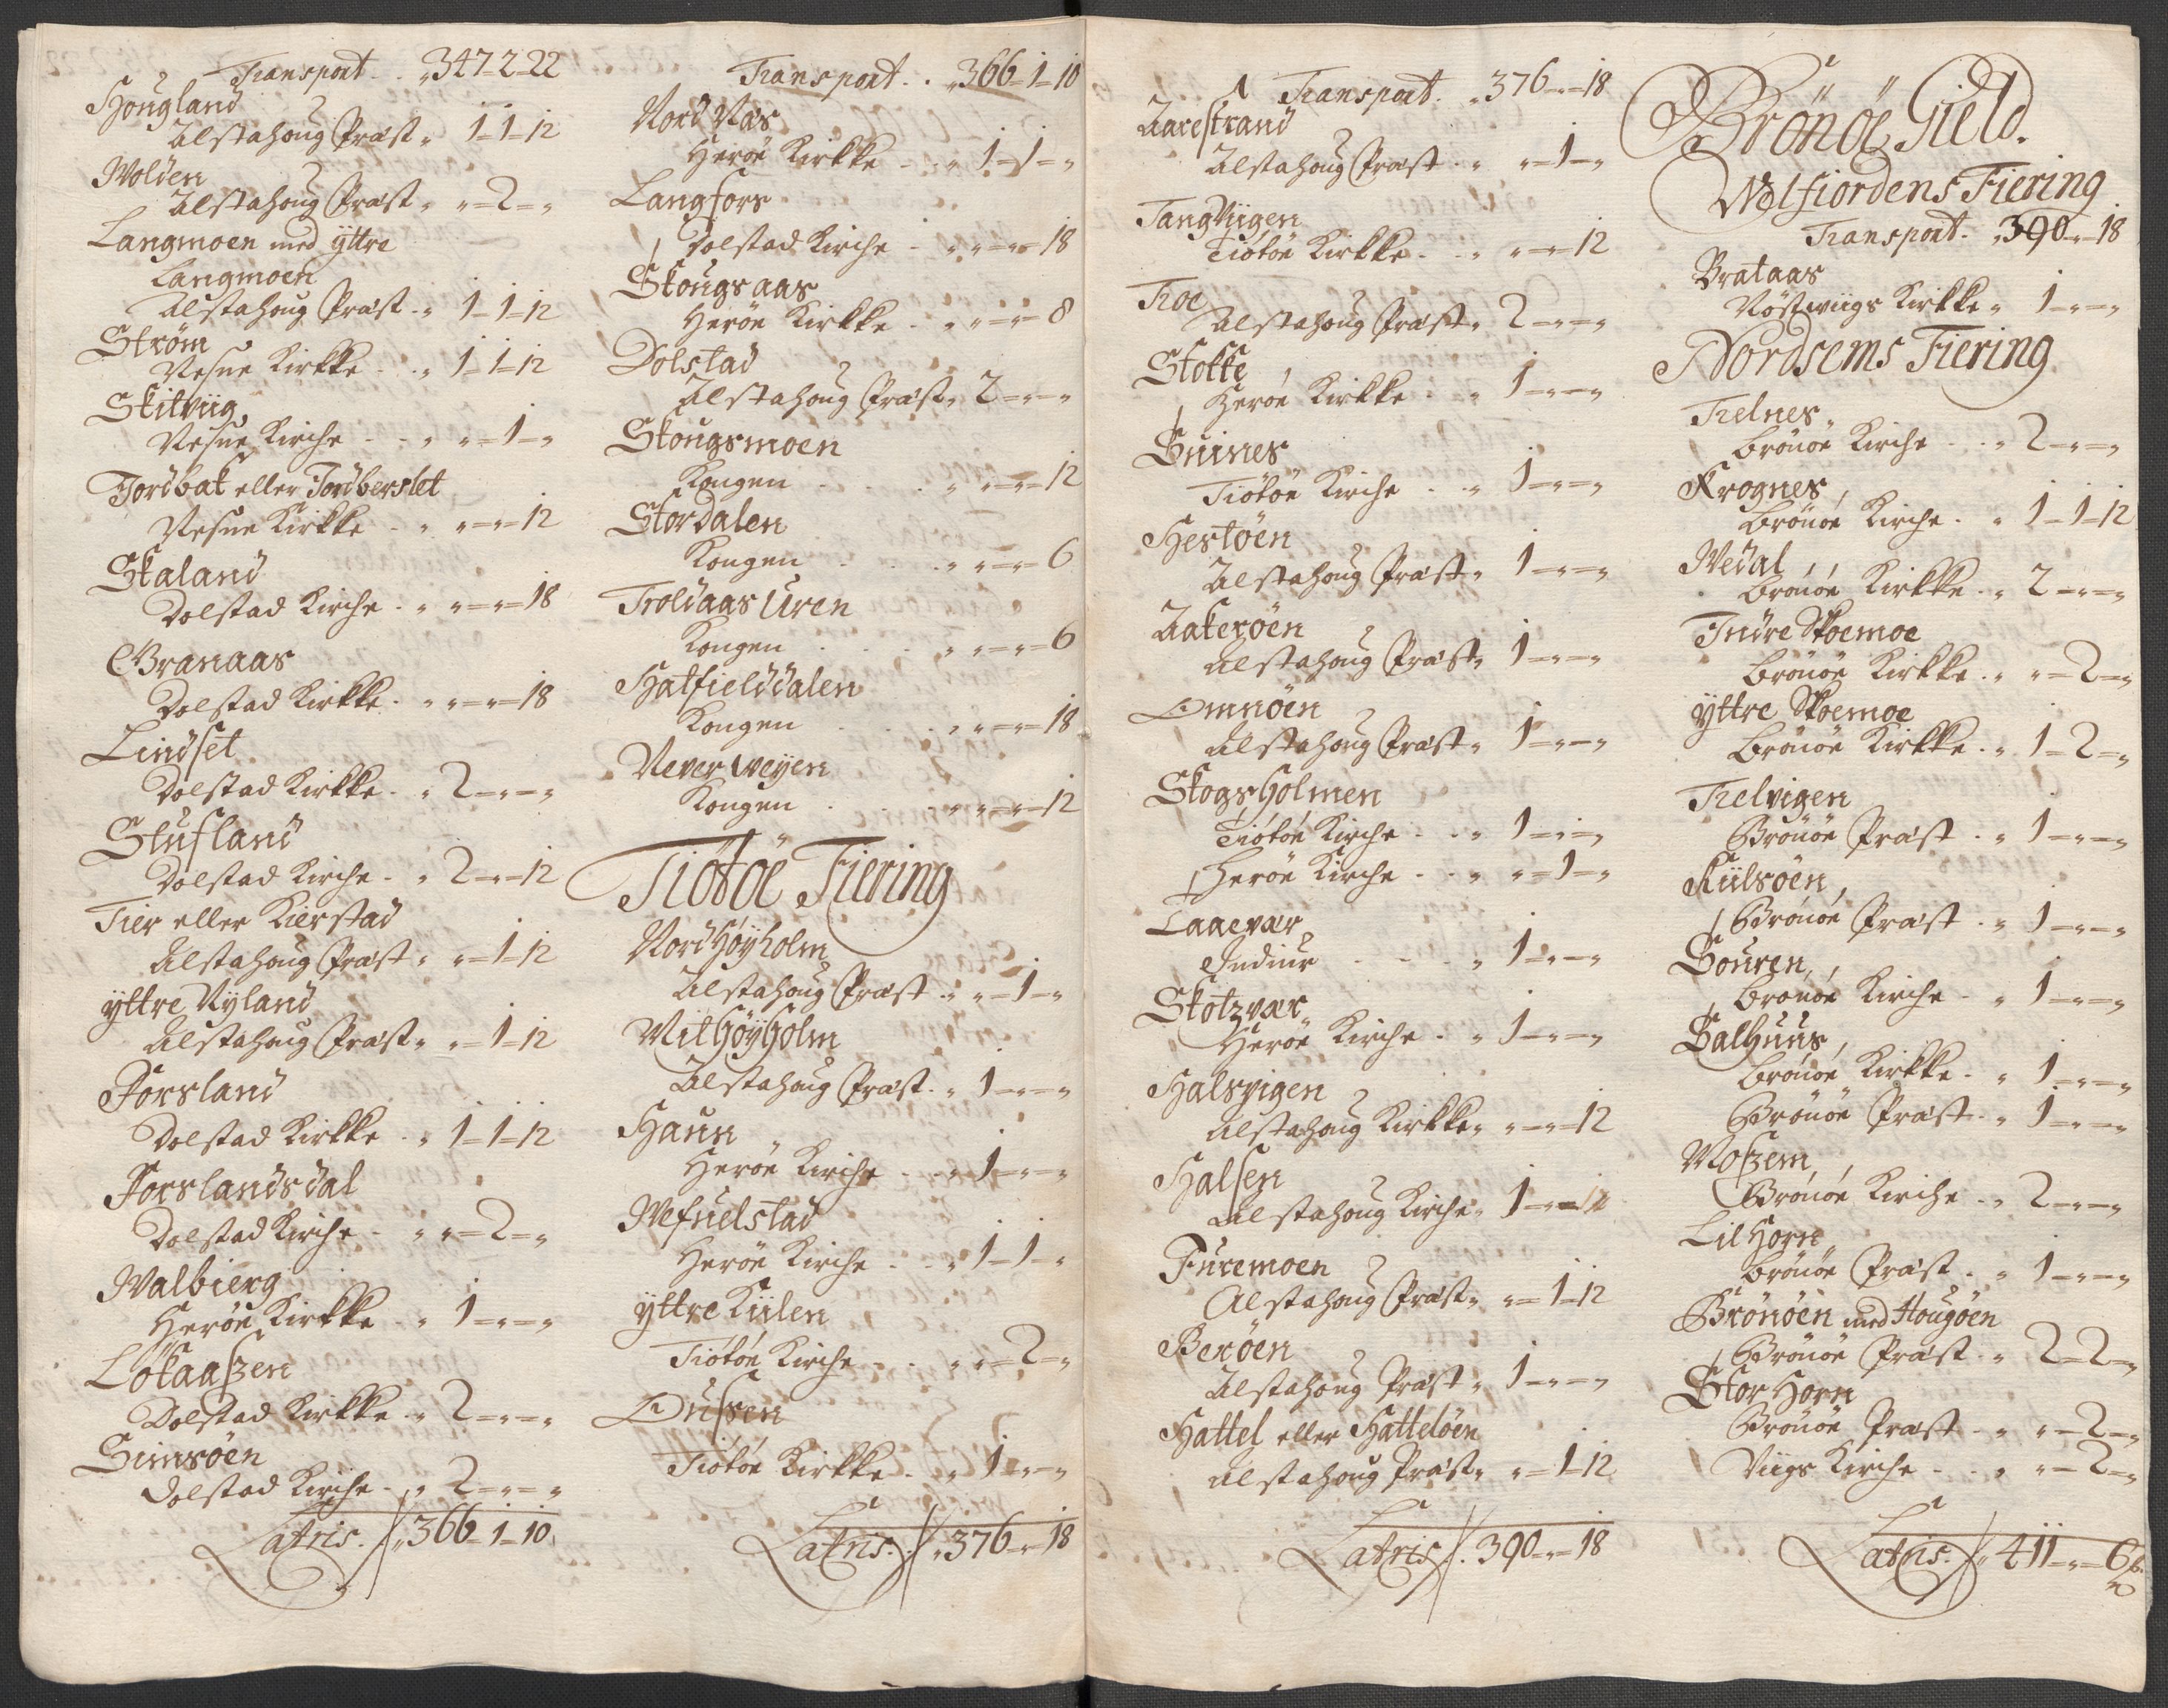 Transport . . „ 347-2-22
Hougland
Alstahoug Præst „ 1-1-12
Wolden
Alstahoug Præst „ „-2-„
Langmoen med yttre
Langmoen
Alstahoug Præst . „ 1-1-12
Strøm
Vefsne Kirkke . . „ 1-1-12
Skitviig
Vefsne Kirche . . „ „-1-„
Jordbak eller Jordberslet
Vefsne Kirkke . „ „-„-12
Skaland
Dolstad Kirche . „ „-„-18
Granaas
Dolstad Kirkke . „ „-„-18
Lindset
Dolstad Kirkke . „ 2-„-„
Stufland
Dolstad Kirche . „ 2-„-12
Tier eller Kierstad
Alstahoug Præst „ „-1-12
yttre Ryland
Alstahoug Præst „ „-1-12
Forsland
Dolstad Kirkke . „ 1-1-12
Forslandsdal
Dolstad Kirche . „ „-2-„
Walbierg
Herøe Kirkke . „ 1-„-„
Løkaaszen
Dolstad Kirkke . „ 2-„-„
Simsøen
Dolstad Kirche . „ 2-„-„
Latris . // „ 366-1-10
Transport . . „ 366-1-10
Nord Næs
Herøe Kirkke . . „ 1-1-„
Langfors
Dolstad Kirche . „ „-„-18
Skougsaas
Herøe Kirkke . „ „-„-8
Dolstad
Alstahoug Præst „ 2-„-„
Skougsmoen
Kongen . . . „ „-„-12
Stordalen
Kongen . . . „ „-„-6
Troldaas Uren
Kongen . . . „ „-„-6
Hatfielddalen
Kongen . . . „ „-„-18
Never weyen
Kongen . . . „ „-„-12
Tiøtøe Fiering
Nord Høyholm
Alstahoug Præst . „ „-1-„
Mit Høyholm
Alstahoug Præst . „ 1-„-„
Haun
Herøe Kirche . . „ 1-„-„
Wefuelstad
Herøe Kirche . . „ 1-1-„
yttre Kiilen
Tiøtøe Kirche . . „ „-2-„
Tiøtøe Kirkke . „ 1-„-„
Latris . // „ 376-„-18
Transport . „ 376-„-18
Aarestrand
Alstahoug Præst . „ „-1-„
Tangviigen
Tiøtøe Kirkke . . „ „-„-12
Troe
Alstahoug Præst „ 2-„-„
Stokke
Herøe Kirkke . „ 1-„-„
Suines
Tiøtøe Kirche . . „ 1-„-„
Hestøen
Alstahoug Præst „ 1-„-„
Aakerøen
Alstahoug Præst „ 1-„-„
Omnøen
Alstahoug Præst „ 1-„-„
Skogsholmen
Tiøtøe Kirche . . „ 1-„-„
Herøe Kirche . . „ „-1-„
Laaevær
. . . „ 1-„-„
Skotzvær
Herøe Kirche . „ 1-„-„
Halsvigen
Alstahoug Kirkke „ „-„-12
Halsen
Alstahoug Kirche „ 1-„-12
Furemoen
Alstahoug Præst „ „-1-12
Berøen
Alstahoug Præst „ 1-„-„
Hattel eller Hatteløen
Alstahoug Præst „ „-1-12
Latris // . 390-„-18
Brønøe Gield.
Welfiordens Fiering
Transport . „ 390-„-18
Brataas
Nøstwiigs Kirkke „ 1-„-„
Nordsems Fiering
Trelnes
Brønøe Kirche . . „ 2-„-„
Krognes
Brønøe Kirche . „ 1-1-12
Wedal
Brønøe Kirkke . „ 2-„-„
Indre Skoemoe
Brønøe Kirkke . „ „-2-„
yttre Skoemoe
Brønøe Kirkke . „ 1-2-„
Trelvigen
Brønøe Præst . „ 1-„-„
Kiilsøen
Brønøe Præst . „ 1-„-„
Souren
Brønøe Kirche . „ 1-„-„
Salhuus
Brønøe Kirkke . „ 1-„-„
Brønøe Præst . „ 1-„-„
Moszem
Brønøe Kirche . „ 2-„-„
Lil Horn
Brønøe Præst . „ 1-„-„
Brønøen med Hougøen
Brønøe Præst . „ 2-2-„
Stor Horn
Brønøe Præst . „ „-2-„
Viigs Kirche . . „ „-2-„
Latris . // „ 411-„-6